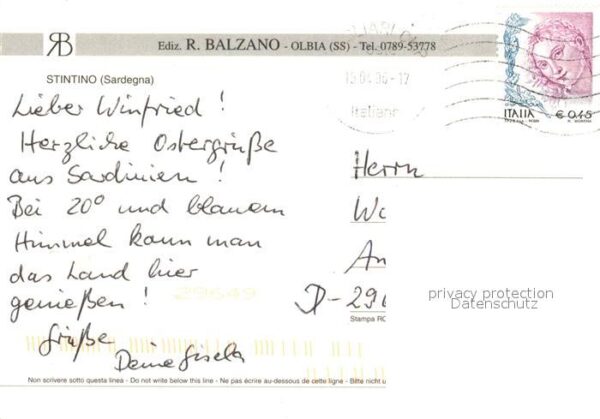 RB
Ediz. R. BALZANO - OLBIA (SS) - Tel. 0789-53778
STINTINO (Sardegna)
Lieber Winfried!
Herzliche Ostergrüße
aus Sardinien!
Bei 20° und blauem
Himmel kann man
das Land hier
genießen!
Grüße
Deine Gisela
CAGLIARI
ITALIA
€ 0,45
Herrn
D-296
29649
privacy protection
Datenschutz
Stampa RO
Non scrivere sotto questa linea - Do not write below this line - Ne pas écrire au-dessous de cette ligne - Bitte nicht u